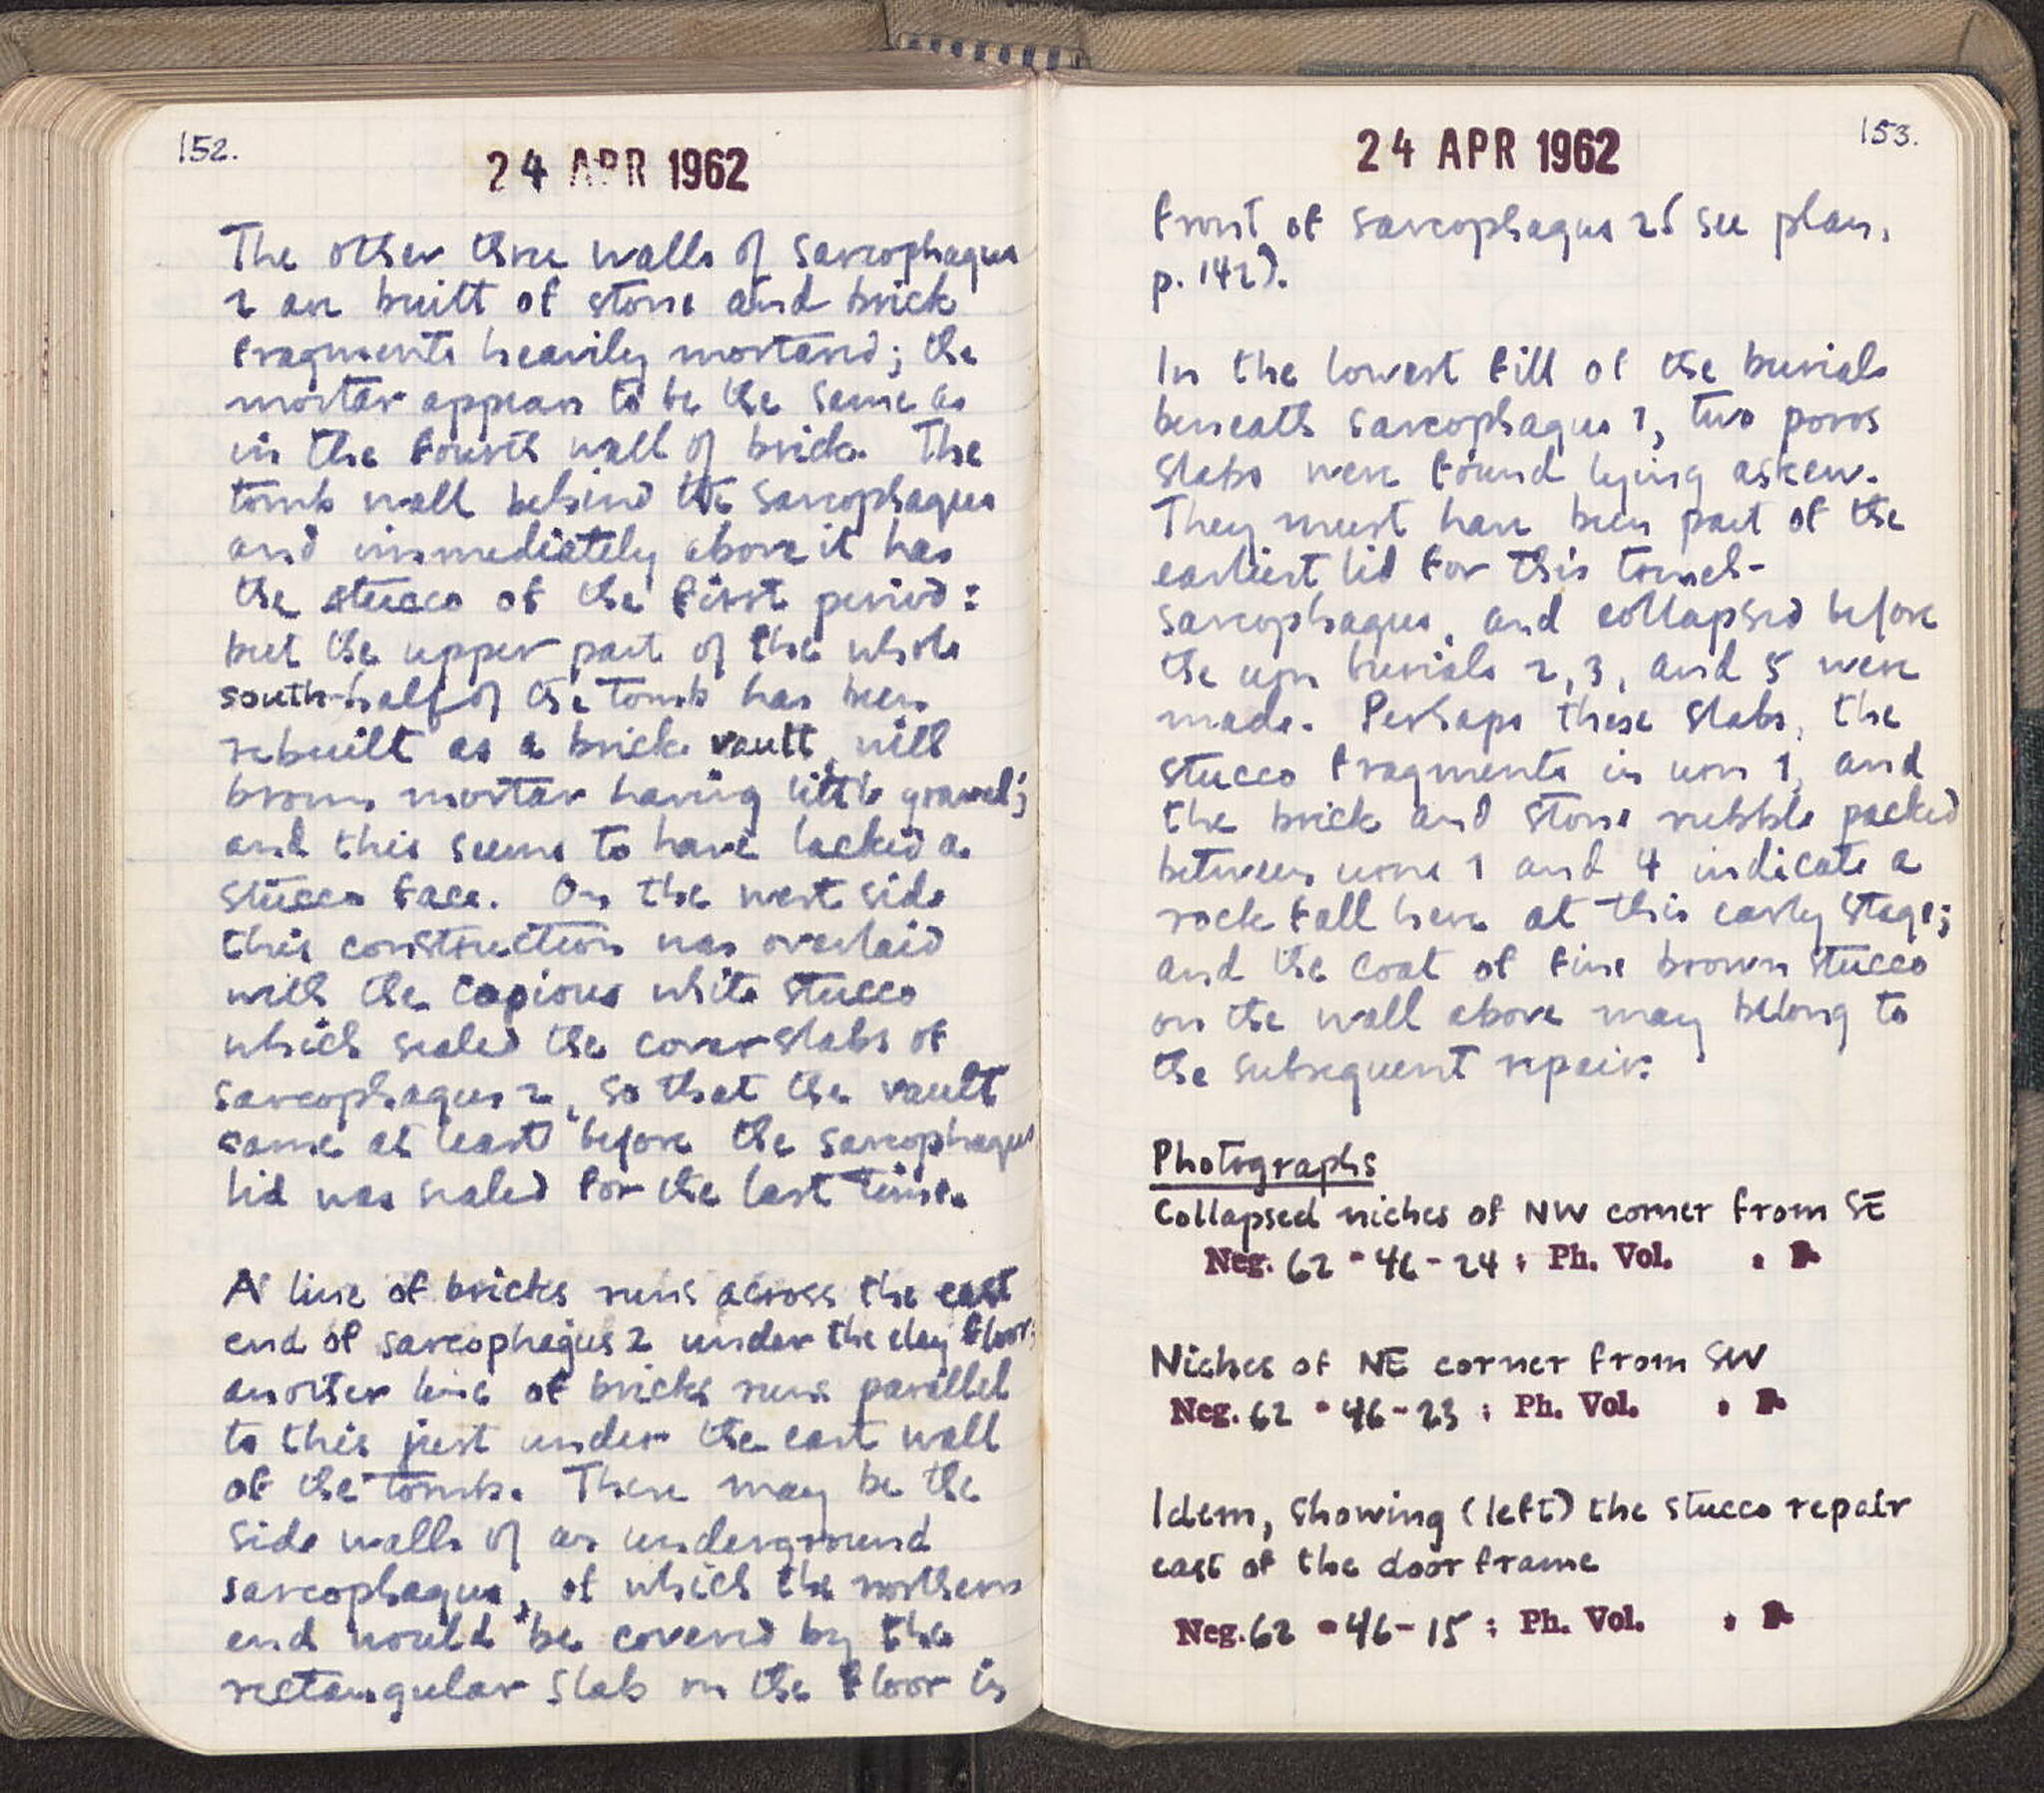 152.
24 APR 1962
The other three walls of sarcophagus
2 are built of stone and brick
fragments heavily mortared; the
mortar appears to be the same as
in the fourth wall of brick. The
tomb wall behind the sarcophagus
and immediately above it has
the stucco of the first period:
but the upper part of the whole
south half of the tomb has been
rebuilt as a brick vault, with
brown mortar having little gravel;
and this seems to have lacked a
stucco face. On the west side
this construction was overlaid
with the copious white stucco
which sealed the cover slabs of
sarcophagus 2, so that the vault
came at least before the sarcophagus
lid was sealed for the last time.
A line of bricks runs across the east
end of sarcophagus 2 under the clay floor;
another line of bricks runs parallel
to this just under the east wall
of the tomb. These may be the
side walls of an underground
sarcophagus, of which the northern
end would be covered by the
rectangular slab on the floor in
153.
24 APR 1962
front of sarcophagus 2 (see plan,
p. 142).
In the lowest fill of the burials
beneath sarcophagus 1, two poros
slabs were found lying askew.
They must have been part of the
earliest lid for this trench-
sarcophagus, and collapsed before
the urn burials 2, 3, and 5 were
made. Perhaps these slabs, the
stucco fragments in urn 1, and
the brick and stone rubble packed
between urns 1 and 4 indicate a
rock fall here at this early stage;
and the coat of fine brown stucco
on the wall above may belong to
the subsequent repair.
Photographs
Collapsed niches of NW corner from SE
Neg. 62 - 46 - 24 ; Ph. Vol. .
Niches of NE corner from SW
Neg. 62 - 46 - 23 ; Ph. Vol. .
Idem, showing (left) the stucco repair
east of the door frame
Neg. 62 - 46 - 15 ; Ph. Vol. .